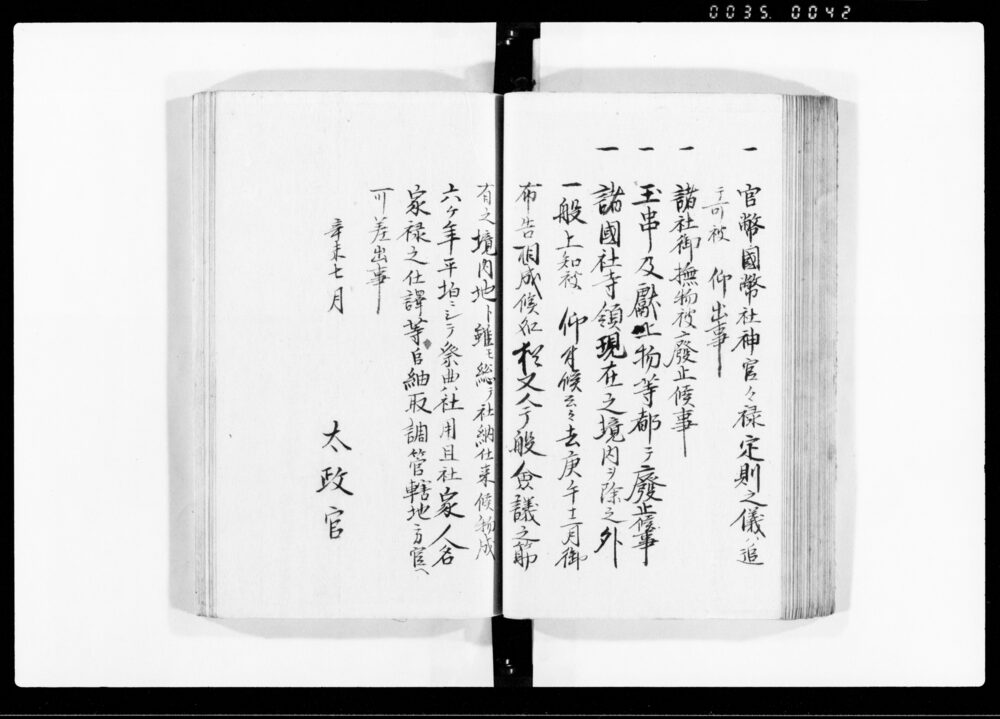 0035.0042
一 官幣國幣社神官々禄定則之儀ハ追
テ可被 仰出事
一 諸社御撫物被廢止候事
一 玉串及獻上物等都テ廢止候事
一 諸國社寺領現在之境内ヲ除之外
一般上知被 仰付候云々去庚午十二月御
布告相成候処 今般會議之節
有之境内地ト雖モ總テ社納仕来候物成
六ケ年平均シテ祭典社用且社家人名
家禄之仕譯等自細取調管轄地方官ヘ
可差出事
辛未七月
太政官